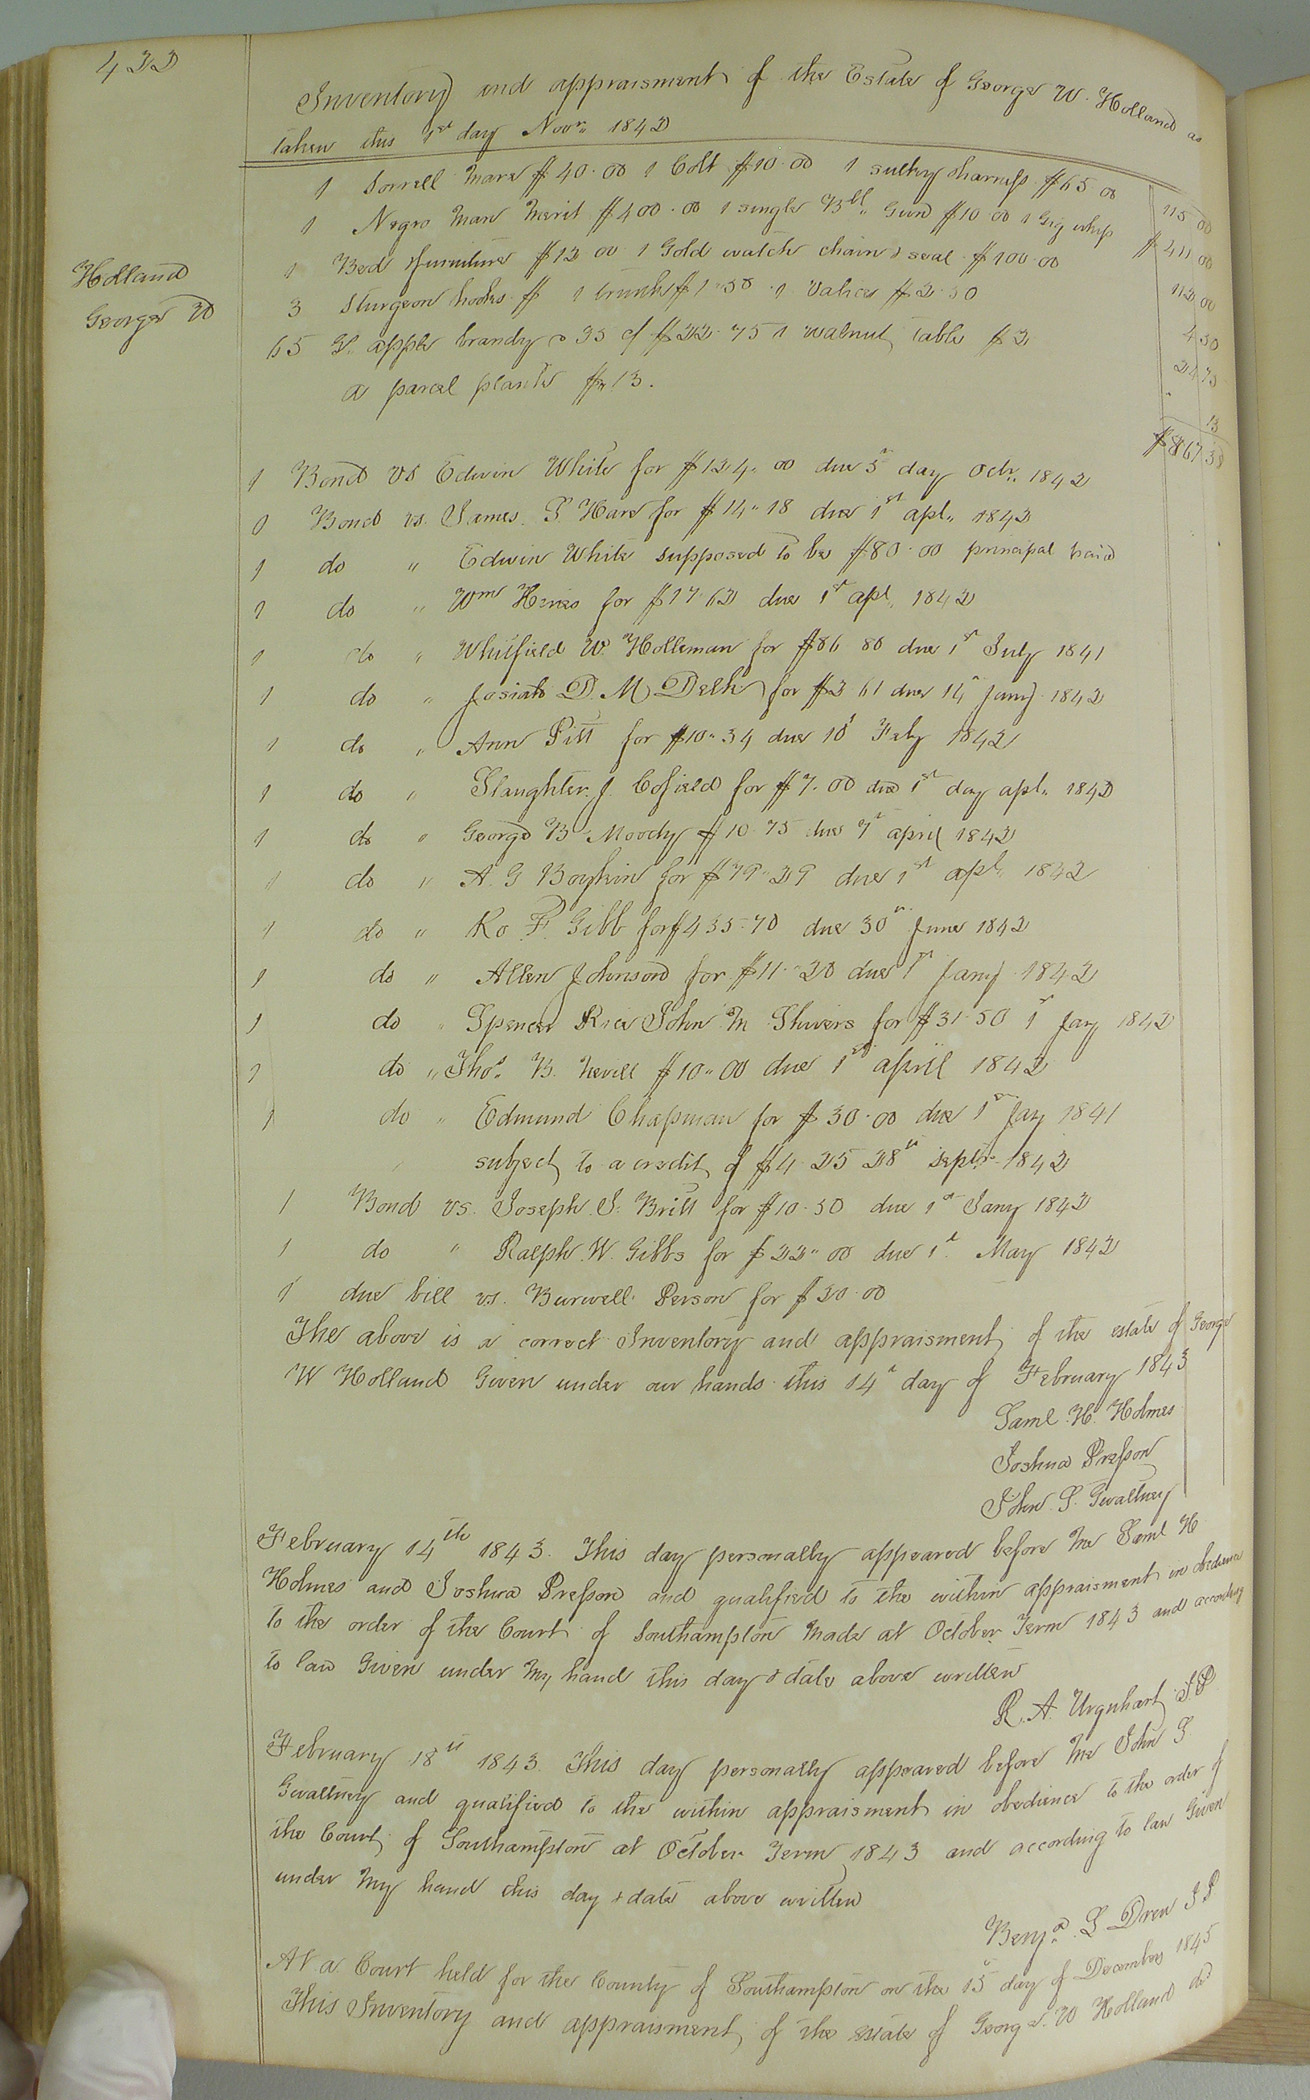 422
Inventory and appraisment of the Estate of George W. Holland as
taken this 1st day Novr. 1842
1 Sorrell mare $40.00 1 Colt $10.00 1 sulkey & harness $65 00 115 00
1 Negro Man Merit $400.00 1 single Bbl. Gun $10 00 1 Gig whip $411 00
Holland
George W
1 Bed & furniture $12 00 1 Gold watch chain & seal $100.00 112 00
3 Sturgeon hooks $ 1 trunk $1.50 1 Valice $2.50 4 50
65 G. apple brandy @ 35 cf $22.75 1 walnut table $2 24 75
a parcel plank $ 13. 13
$867 38
1 Bond vs Edwin White for $124.00 due 5th day Octr. 1842
1 Bond vs. James P. Hare for $14.18 due 1st apl. 1842
1 do " Edwin White supposed to be $80.00 principal paid
1 do " Wm Hines for $17.62 due 1st apl. 1842
1 do " Whitfield W. Holleman for $86 80 due 1st July 1841
1 do " Josiah D. M. Delk for $2 61 due 14th Jany 1842
1 do " Ann Pitt for $10.34 due 10th Feby 1842
1 do " Slaughter J. Cofield for $7.00 due 1st day apl. 1842
1 do " George B Moody $10.75 due 7th april 1842
1 do " A. G Boykin for $79.29 due 1st apl. 1842
1 do " Ro P. Gibb for $435.70 due 30th June 1842
1 do " Allen Johnson for $11.20 due 1st Jany 1842
1 do " Spencer Rice John M Shivers for $31.50 1st Jany 1842
1 do " Thos. B. Nevill $10.00 due 1st april 1842
1 do " Edmund Chapman for $30.00 due 1st Jay 1841
subject to a credit of $4.25 28th Septr. 1842
1 Bond vs. Joseph J. Britt for $10.50 due 1st Jany 1842
1 do " Ralph W. Gibbs for $22.00 due 1st. May 1842
1 due bill vs. Burwell Person for $20.00
The above is a correct Inventory and appraisment of the estate of George
W Holland Given under our hands this 14th day of February 1843
Saml. H. Holmes
Joshua Presson
John S. Gwaltney
February 14th 1843. This day personally appeared before Me Saml H
Holmes and Joshua Presson and qualified to the within appraisment in obedience
to the order of the Court of Southampton Made at October Term 1843 and according
to law Given under My hand this day & date above written
R. A. Urquhart J.P
February 18th 1843. This day personally appeared before Me John S.
Gwaltney and qualified to the within appraisment in obedience to the order of
the Court of Southampton at October Term 1843 and according to law Given
under My hand this day & date above written
Benja. S Drew J P
At a Court held for the County of Southampton on the 15th day of December 1845
This Inventory and appraisment of the estate of George W Holland decd